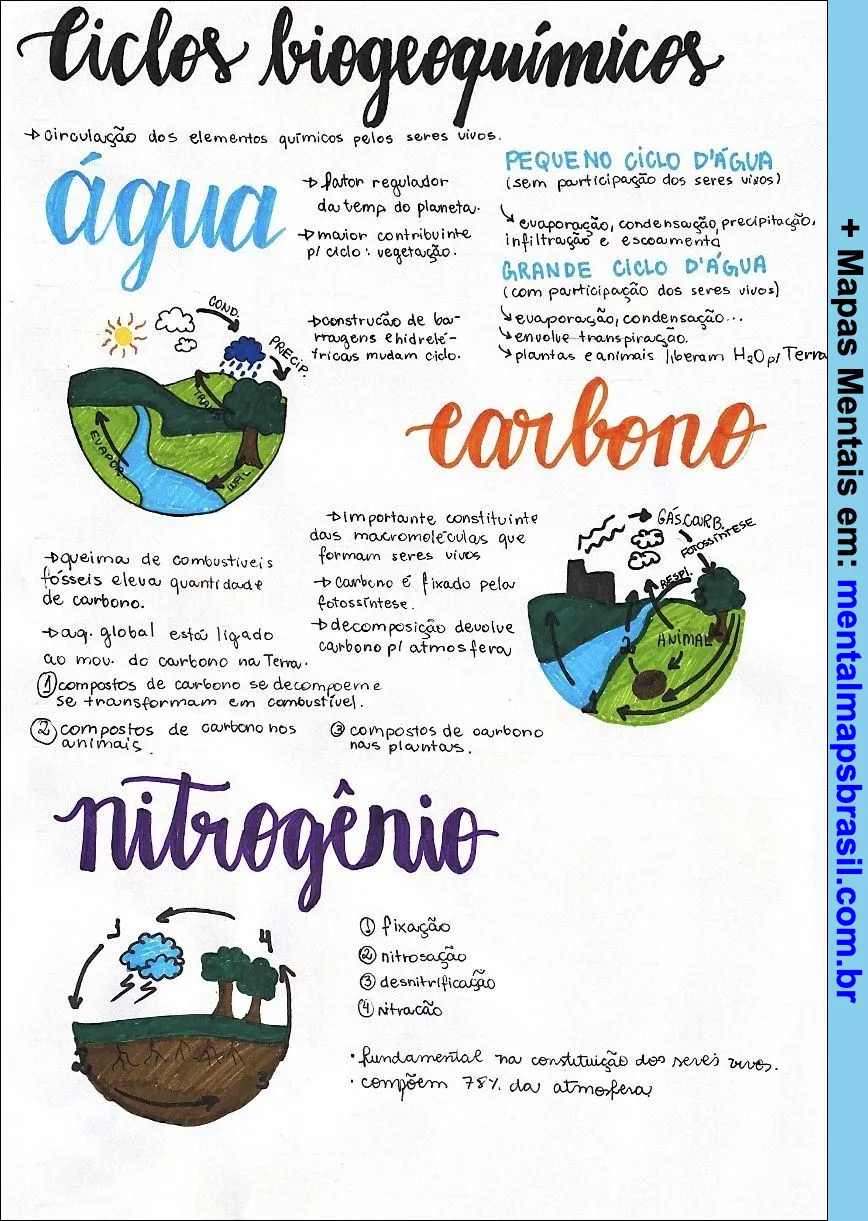 Ciclos biogeoquímicos
→ circulação dos elementos químicos pelos seres vivos.
água
→ fator regulador
da temp do planeta.
→ maior contribuinte
p/ ciclo: vegetação.
→ construcão de bar-
ragens e hidrelé-
tricas mudam ciclo.
PEQUENO CICLO D'ÁGUA
(sem participação dos seres vivos)
↳ evaporação, condensação, precipitação,
infiltração e escoamento
GRANDE CICLO D'ÁGUA
(com participação dos seres vivos)
↳ evaporação, condensação...
↳ envolve transpiração.
↳ plantas e animais liberam H₂O p/ Terra
COND.
PRECIP.
TRANS.
EVAPOR.
carbono
→ importante constituinte
das macromoléculas que
formam seres vivos
→ carbono é fixado pela
fotossíntese.
→ decomposição devolve
carbono p/ atmosfera
→ queima de combustíveis
fósseis eleva quantidade
de carbono.
→ aq. global está ligado
ao mov. do carbono na Terra.
① compostos de carbono se decompoem e
se transformam em combustível.
② compostos de carbono nos
animais.
③ compostos de carbono
nas plantas.
GÁS CARB.
FOTOSSÍNTESE
RESPI.
3
ANIMAL
2
nitrogênio
1
4
2
3
① fixação
② nitrosação
③ desnitrificação
④ nitracão
• fundamental na constituição dos seres vivos.
• compõem 78% da atmosfera
+ Mapas Mentais em: mentalmapsbrasil.com.br